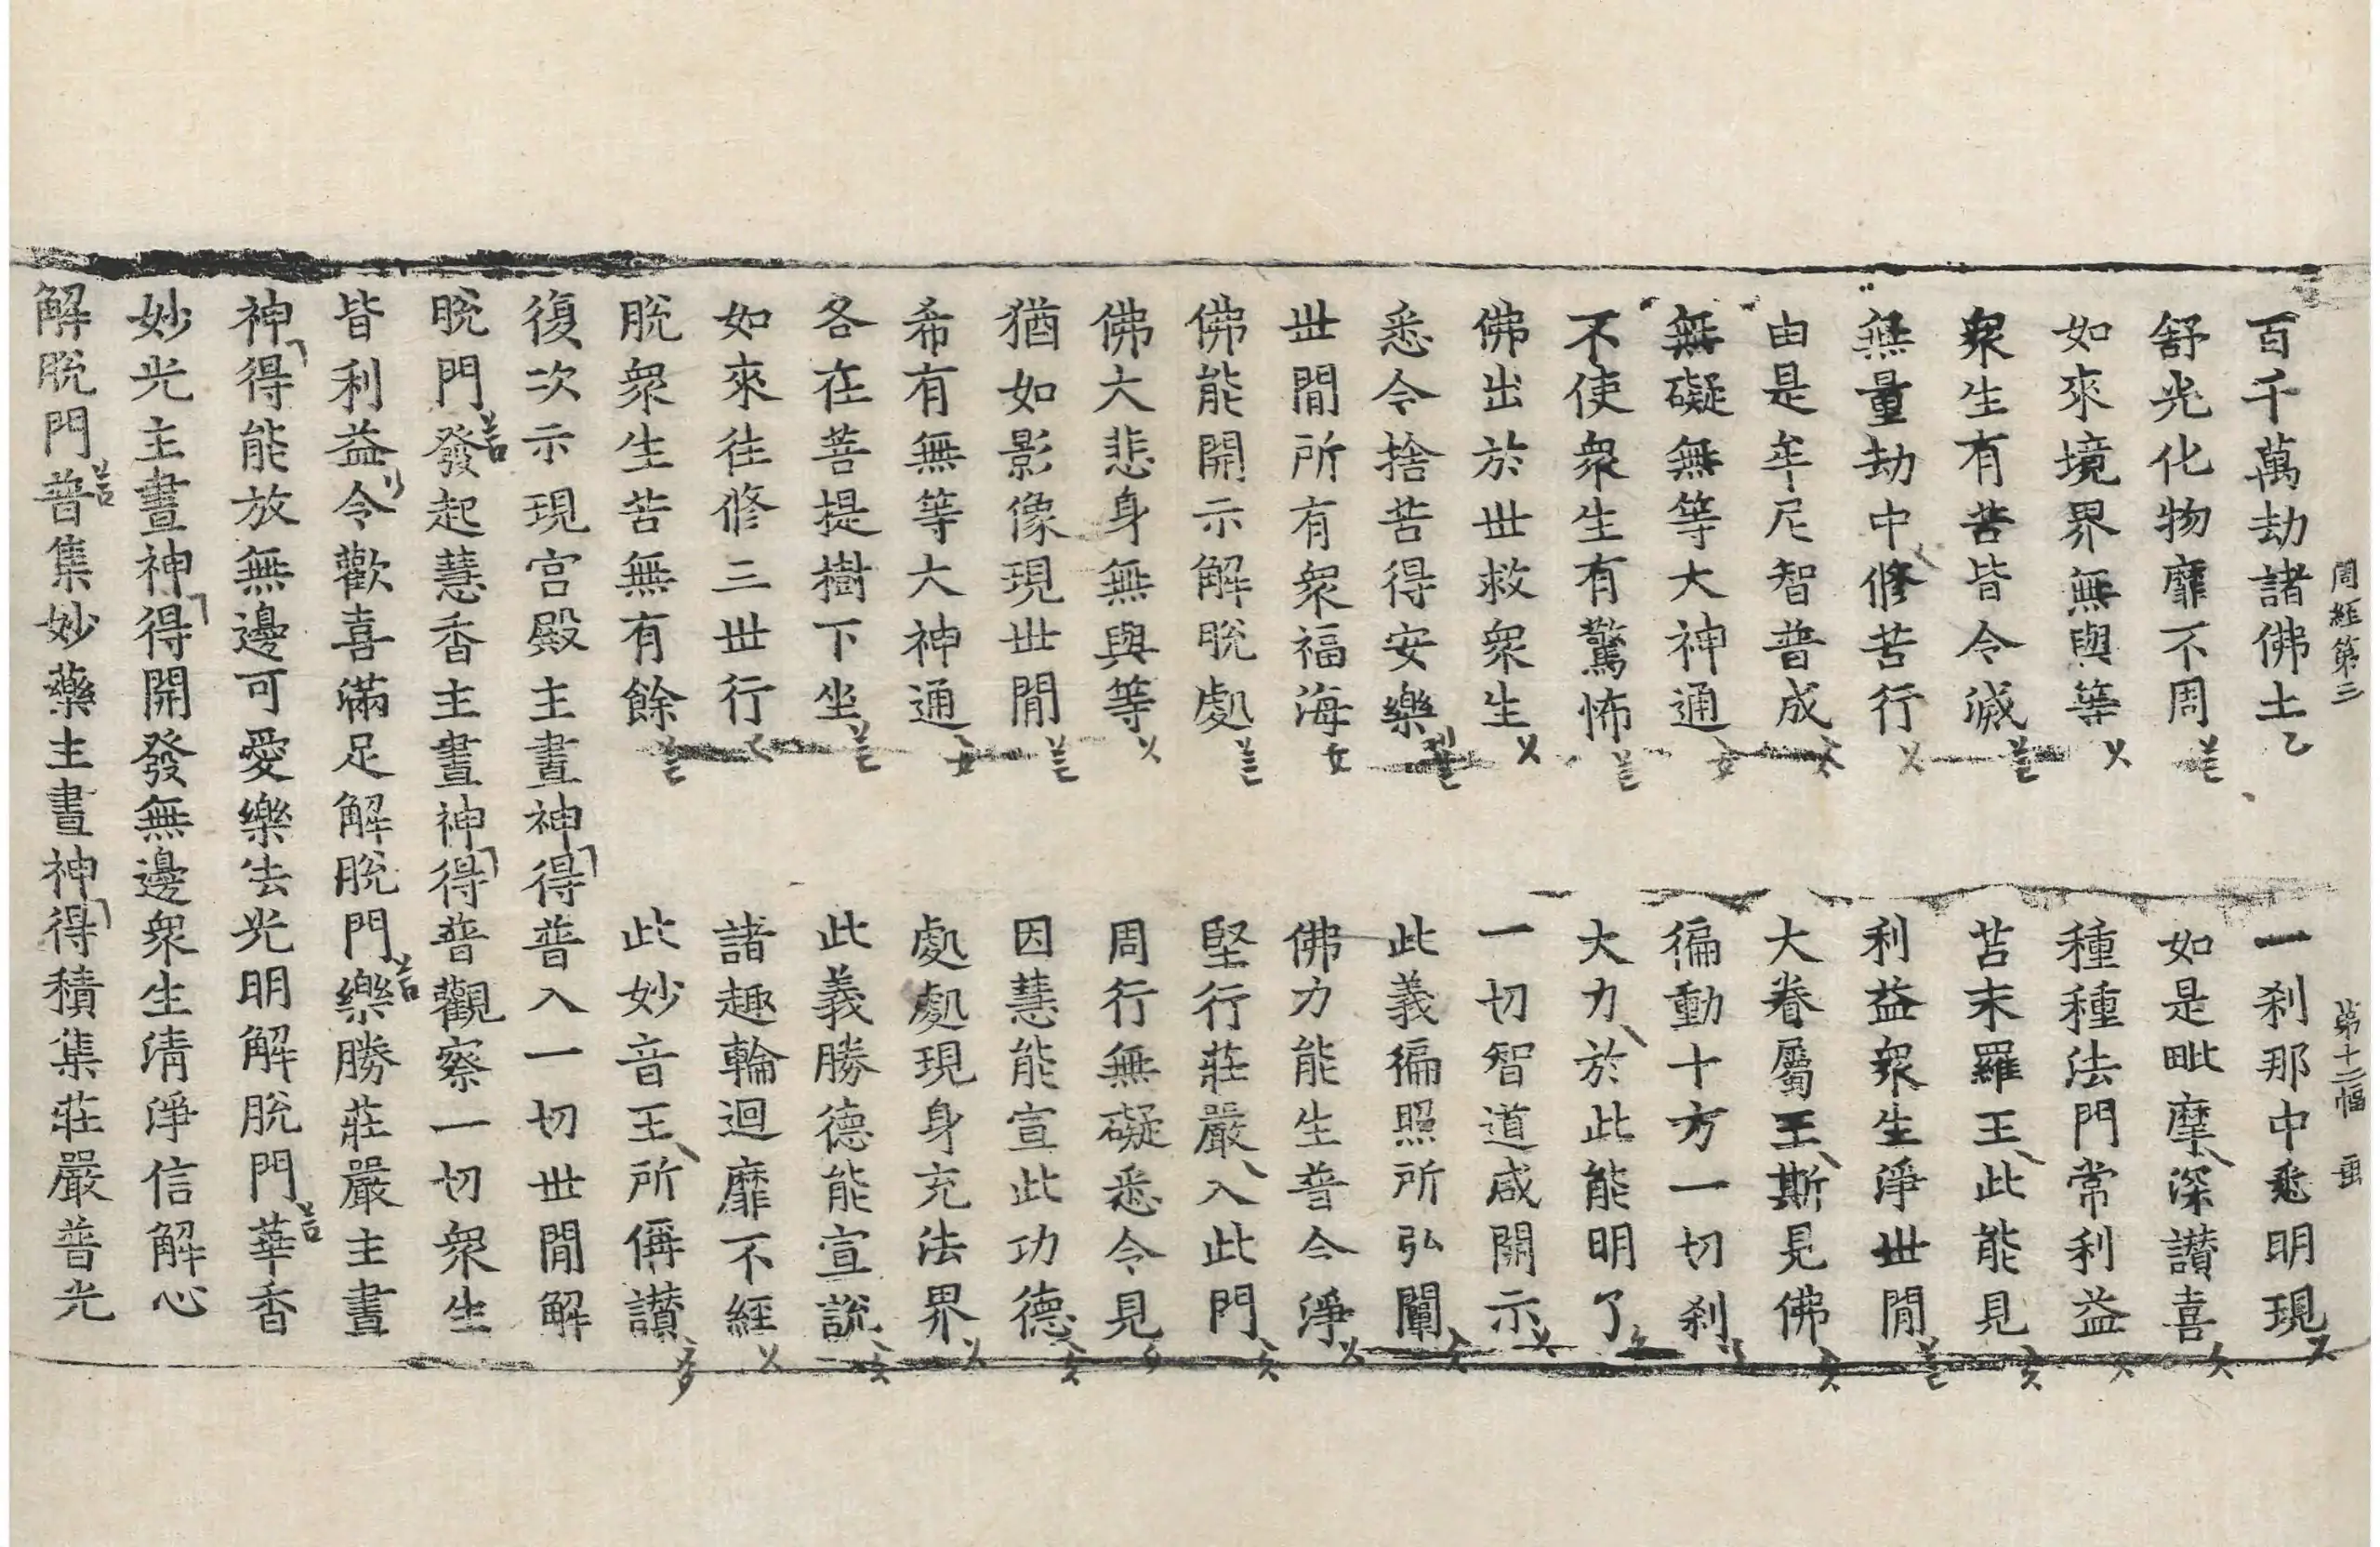 周經第三　第十二幅　垂
百千萬劫諸佛土　一刹那中悉明現
舒光化物靡不周　如是毗摩深讃喜
如來境界無與等　種種法門常利益
衆生有苦皆令滅　苫末羅王此能見
無量劫中修苦行　利益衆生淨世閒
由是牟尼智普成　大眷屬王斯見佛
無礙無等大神通　徧動十方一切刹
不使衆生有驚怖　大力於此能明了
佛出於世救衆生　一切智道咸開示
悉令捨苦得安樂　此義徧照所弘闡
世閒所有衆福海　佛力能生普令淨
佛能開示解脫處　堅行莊嚴入此門
佛大悲身無與等　周行無礙悉令見
猶如影像現世閒　因慧能宣此功德
希有無等大神通　處處現身充法界
各在菩提樹下坐　此義勝德能宣說
如來往修三世行　諸趣輪迴靡不經
脫衆生苦無有餘　此妙音王所偁讃
復次示現宮殿主晝神得普入一切世閒解
脫門發起慧香主晝神得普觀察一切衆生
皆利益令歡喜滿足解脫門樂勝莊嚴主晝
神得能放無邊可愛樂法光明解脫門華香
妙光主晝神得開發無邊衆生淸淨信解心
解脫門普集妙藥主晝神得積集莊嚴普光